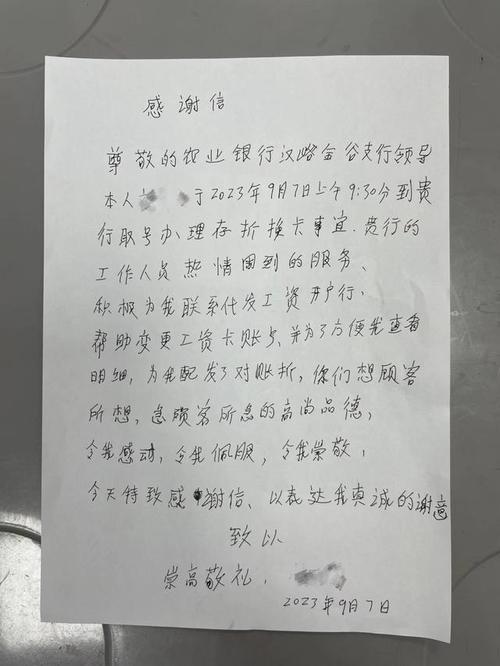 感谢信
尊敬的农业银行汉路金谷支行领导
本人 于2023年9月7日上午9:30分到贵
行取号办理存折换卡事宜.贵行的
工作人员热情周到的服务、
积极为我联系代发工资开户行,
帮助变更工资卡账号,并为了方便我查看
明细,为我配发了对账折,你们想顾客
所想,急顾客所急的高尚品德,
令我感动,令我佩服,令我崇敬,
今天特致感谢信、以表达我真诚的谢意
致以
崇高敬礼,
2023年9月7日